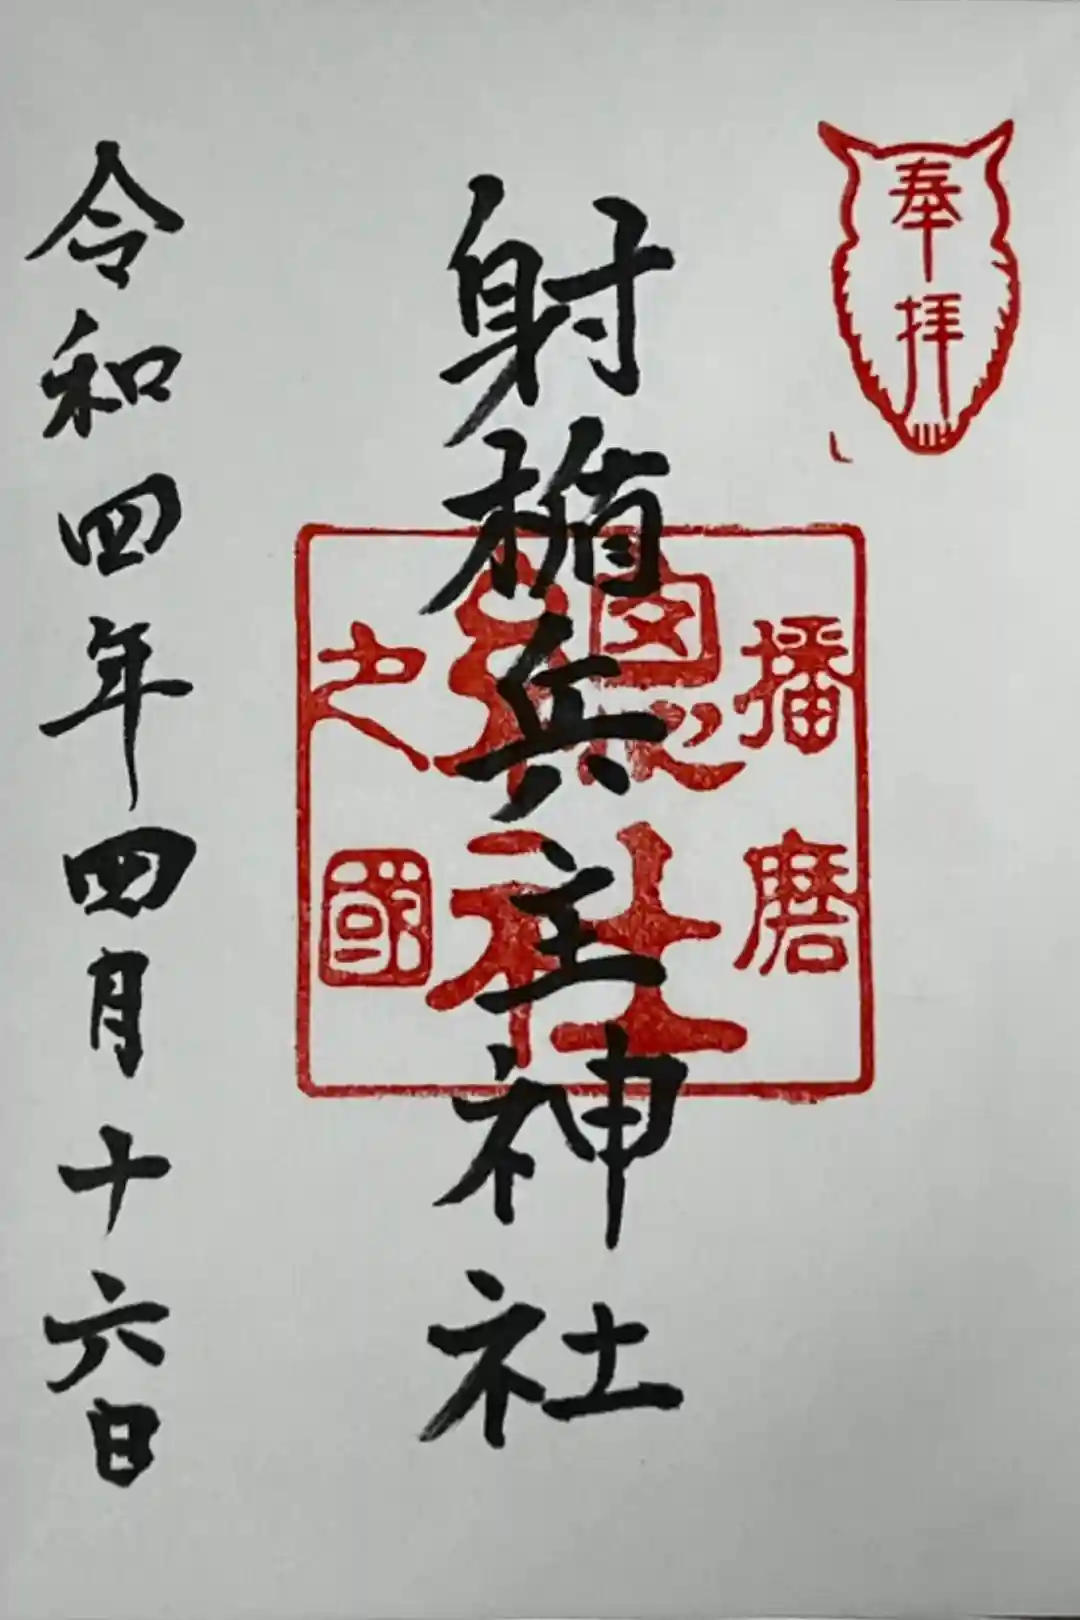 奉拝
射楯兵主神社
播磨
總社
之國
令和四年四月十六日